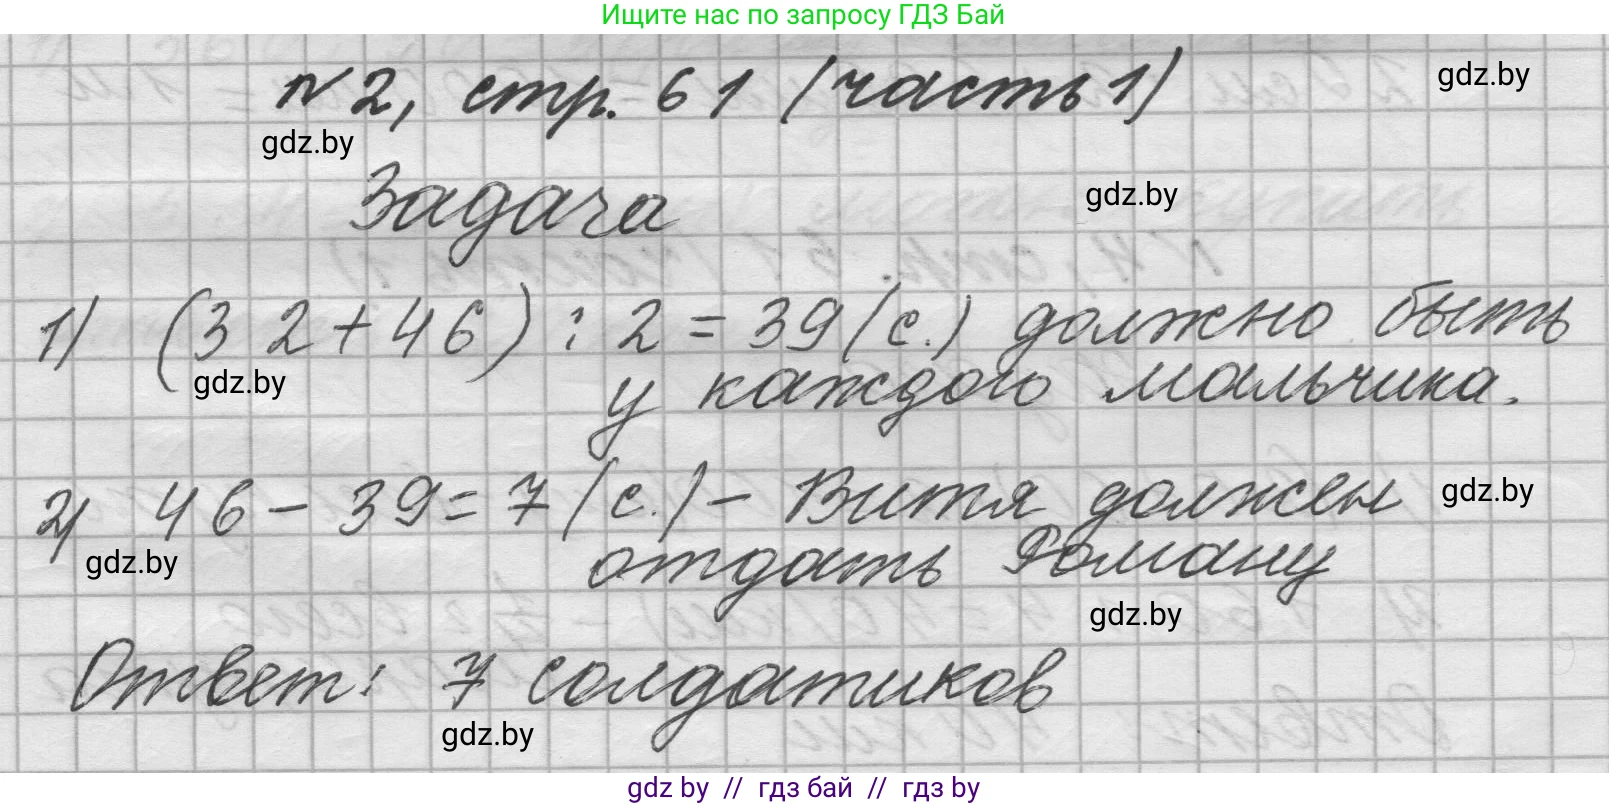 Ищите нас по запросу ГДЗ Бай
gdz.by
N 2, стр. 61 (часть 1)
gdz.by
Задача
gdz.by
1) (32+46) : 2 = 39 (с.) должно быть
gdz.by
у каждого мальчика.
2) 46 - 39 = 7 (с.) - Витя должен
gdz.by
gdz.by
отдать Роману
gdz.by
Ответ: 7 солдатиков
gdz.by
gdz by // гдз бай // гдз by